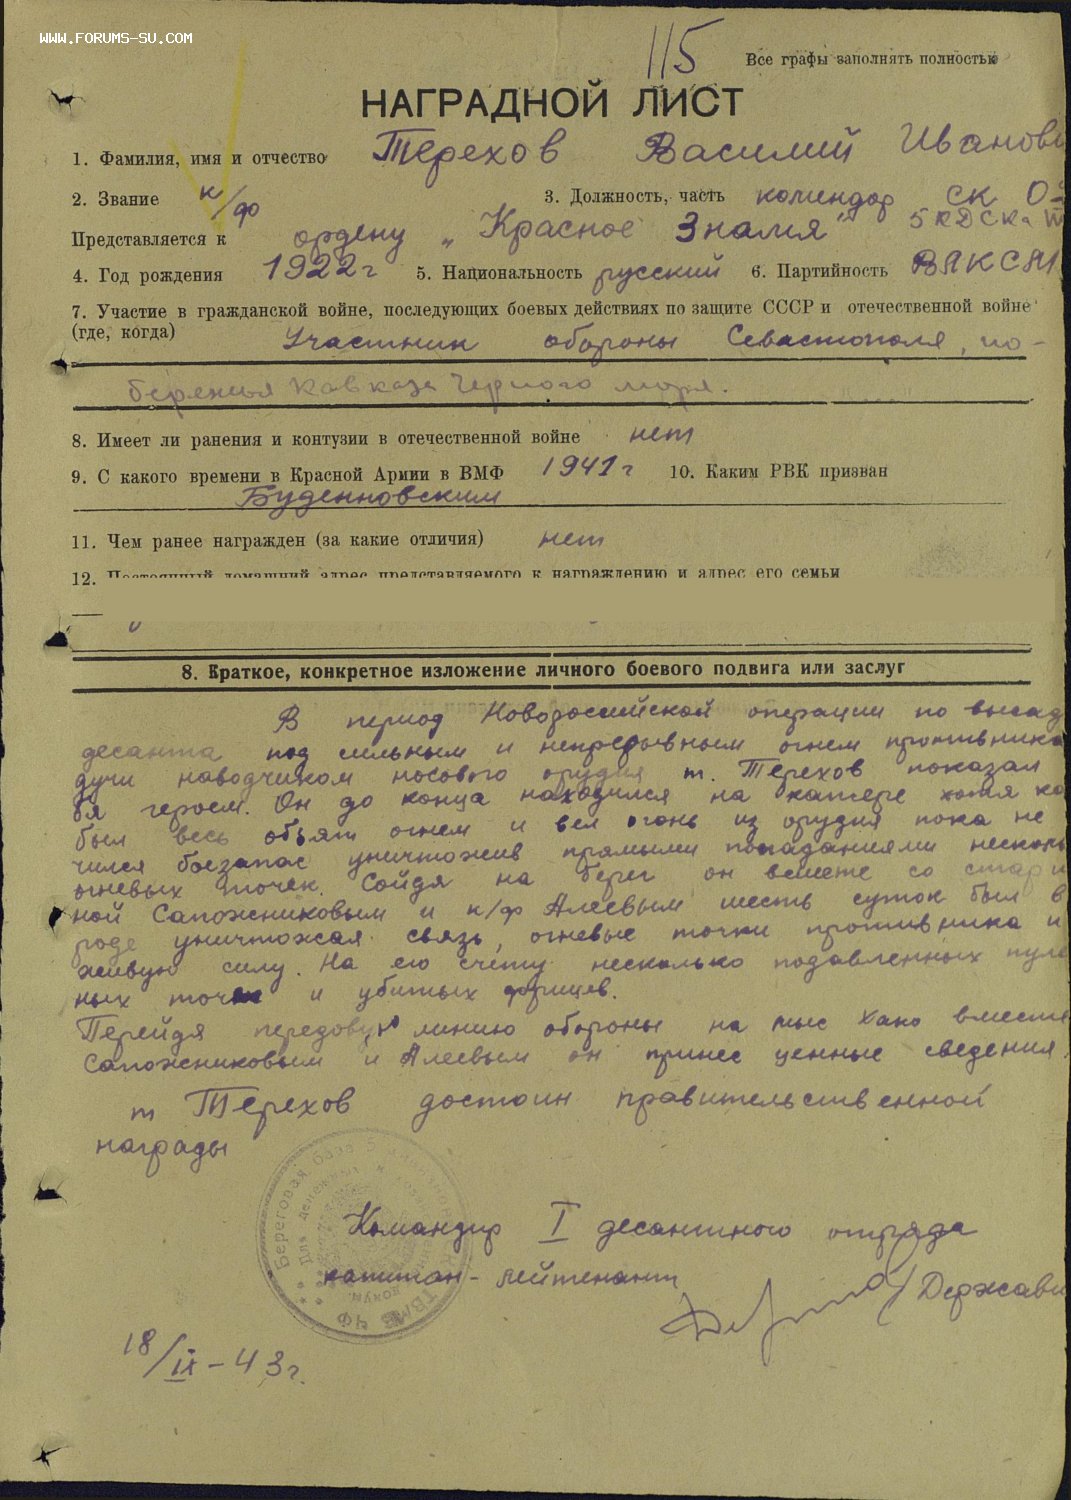 WWW.FORUMS-SU.COM
115
Все графы заполнять полностью
НАГРАДНОЙ ЛИСТ
1. Фамилия, имя и отчество Терехов Василий Иванови
2. Звание к/ф 3. Должность, часть комендор СК 0
Представляется к ордену „Красное Знамя" 5 КДСКа
4. Год рождения 1922 г 5. Национальность русский 6. Партийность ВЛКСМ
7. Участие в гражданской войне, последующих боевых действиях по защите СССР и отечественной войне
(где, когда) Участник обороны Севастополя, по-
бережья Кавказа Черного моря.
8. Имеет ли ранения и контузии в отечественной войне нет
9. С какого времени в Красной Армии в ВМФ 1941 г 10. Каким РВК призван
Буденновским
11. Чем ранее награжден (за какие отличия) нет
12. Постоянный домашний адрес представляемого к награждению и адрес его семьи
8. Краткое, конкретное изложение личного боевого подвига или заслуг
В период Новороссийской операции по высад
десанта под сильным и непрерывным огнем противника
дучи наводчиком носового орудия т. Терехов показал
бя героем. Он до конца находился на катере хотя ка
был весь объят огнем и вел огонь из орудия пока не
чился боезапас уничтожив прямыми попаданиями несколь
огневых точек. Сойдя на берег он вместе со стар
ной Сапожниковым и к/ф Алеевым шесть суток был в
роде уничтожая связь, огневые точки противника и
живую силу. На его счету несколько подавленных пуле
ных точек и убитых фрицев.
Перейдя передовую линию обороны на мыс Хако вместе
Сапожниковым и Алеевым он принес ценные сведения.
т Терехов достоин правительственной
награды
Береговая база 5
Для денежных
ТВМБ ЧФ
Командир I десантного отряда
капитан-лейтенант /Держави
18/IX-43г.